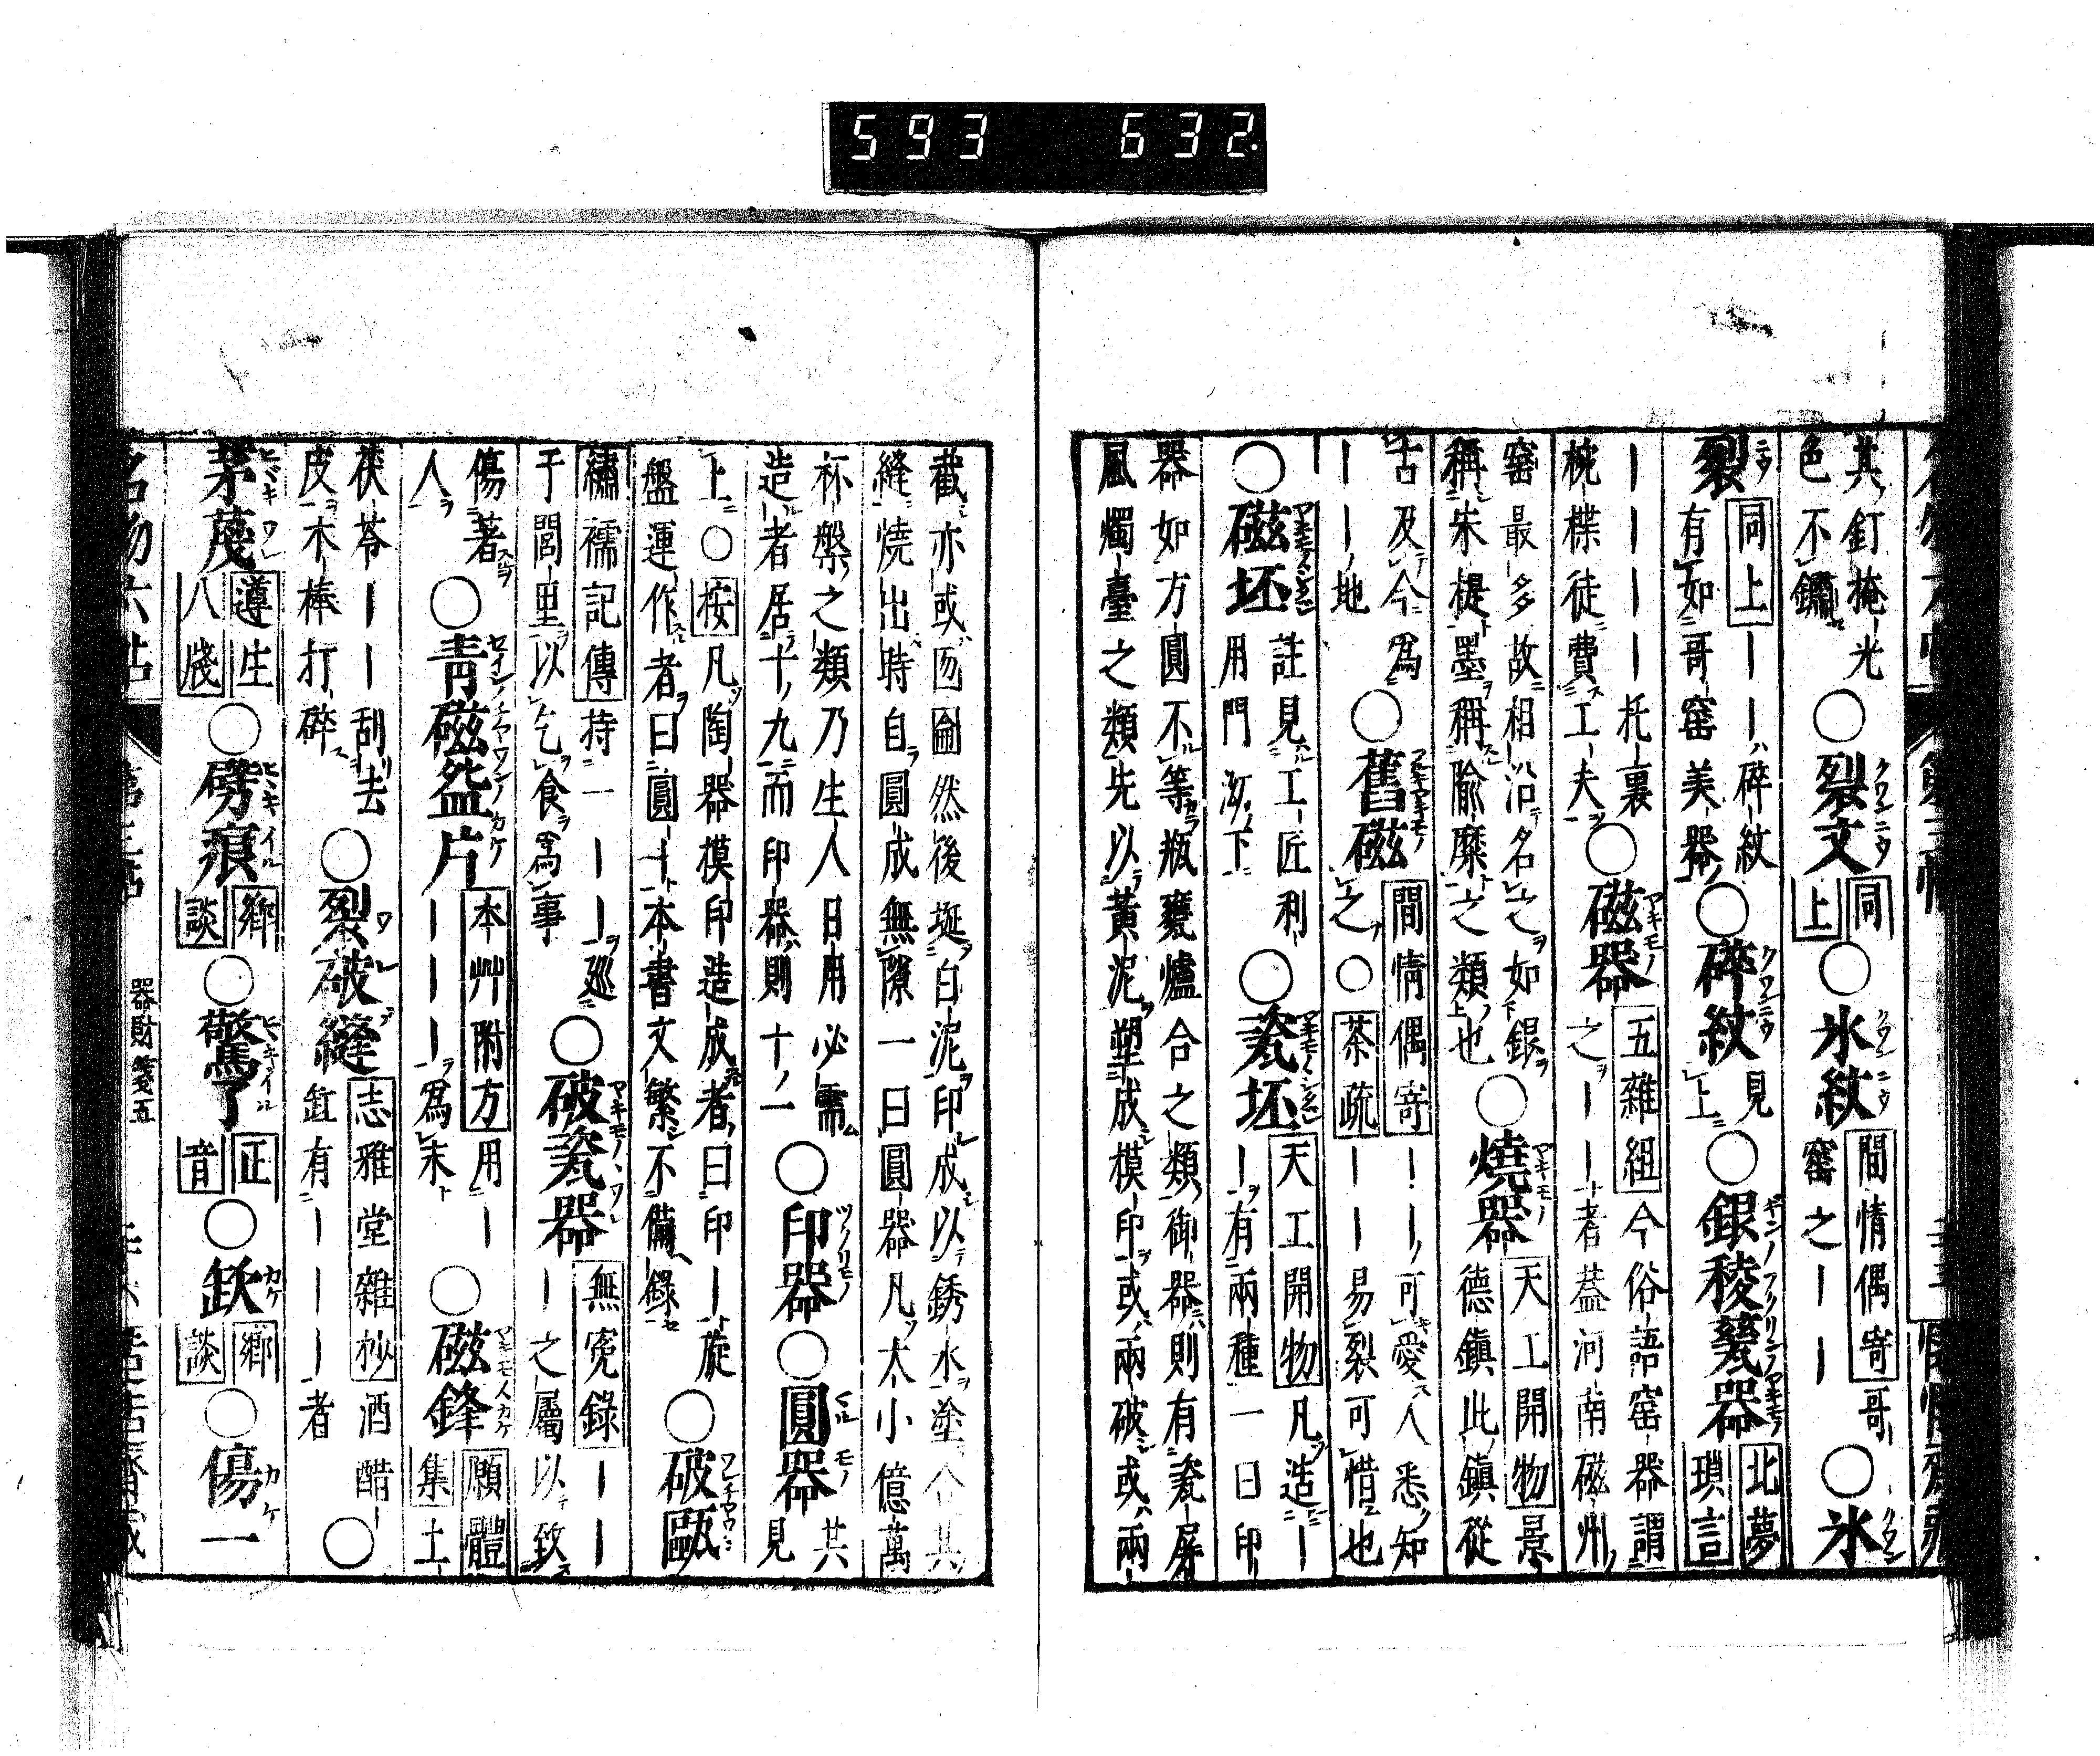 593 632.
其釘掩光
色不鏽
○裂文
同
上
○氷紋
間情偶寄
哥
窑之――
○氷
裂
同上
―――碎紋
有如哥窑美器
○碎紋
見
上
○銀稜甆器
北夢
瑣言
――――托裏
椀楪徒費工夫
○磁器
五雜組
今俗語窑器謂
之――者蓋河南磁州
窑最多故相沿名之如銀
稱朱提墨稱隃糜之類也
○燒器
天工開物
景
德鎮此鎮從
古及今爲
――地
○舊磁
間情偶寄
――可愛人悉知
之○
茶疏
――易裂可惜也
○磁坯
註見工匠利
用門
下
○瓷坯
天工開物
凡造―
―有兩種一曰印
器如方圓不等瓶甕爐合之類御器則有瓷屏
風燭臺之類先以黃泥塑成模印或兩破或兩
截亦或囫圇然後埏白泥印成以銹水塗合其
縫燒出時自圓成無隙一曰圓器凡大小億萬
杯盤之類乃生人日用必需
造者居十九而印器則十一
○印器
○圓器
共
見
上○
按
凡陶器模印造成者曰印―旋
盤運作者曰圓―本書文繁不備錄
○破甌
繡襦記傳
持一――廵
于閭里以乞食爲事
○破瓷器
無寃錄
――
―之屬以致
傷著
人
○青磁盌片
本艸附方
用―
―――爲末
○磁鋒
願體
集
土
茯苓――刮去
皮木棒打碎
○裂破縫
志雅堂雜抄
酒醋
缸有―――者
○
茅蔑
遵生
八牋
○劈痕
鄉
談
○驚了
正
音
○缺
鄉
談
○傷一
名物六帖
器財箋五